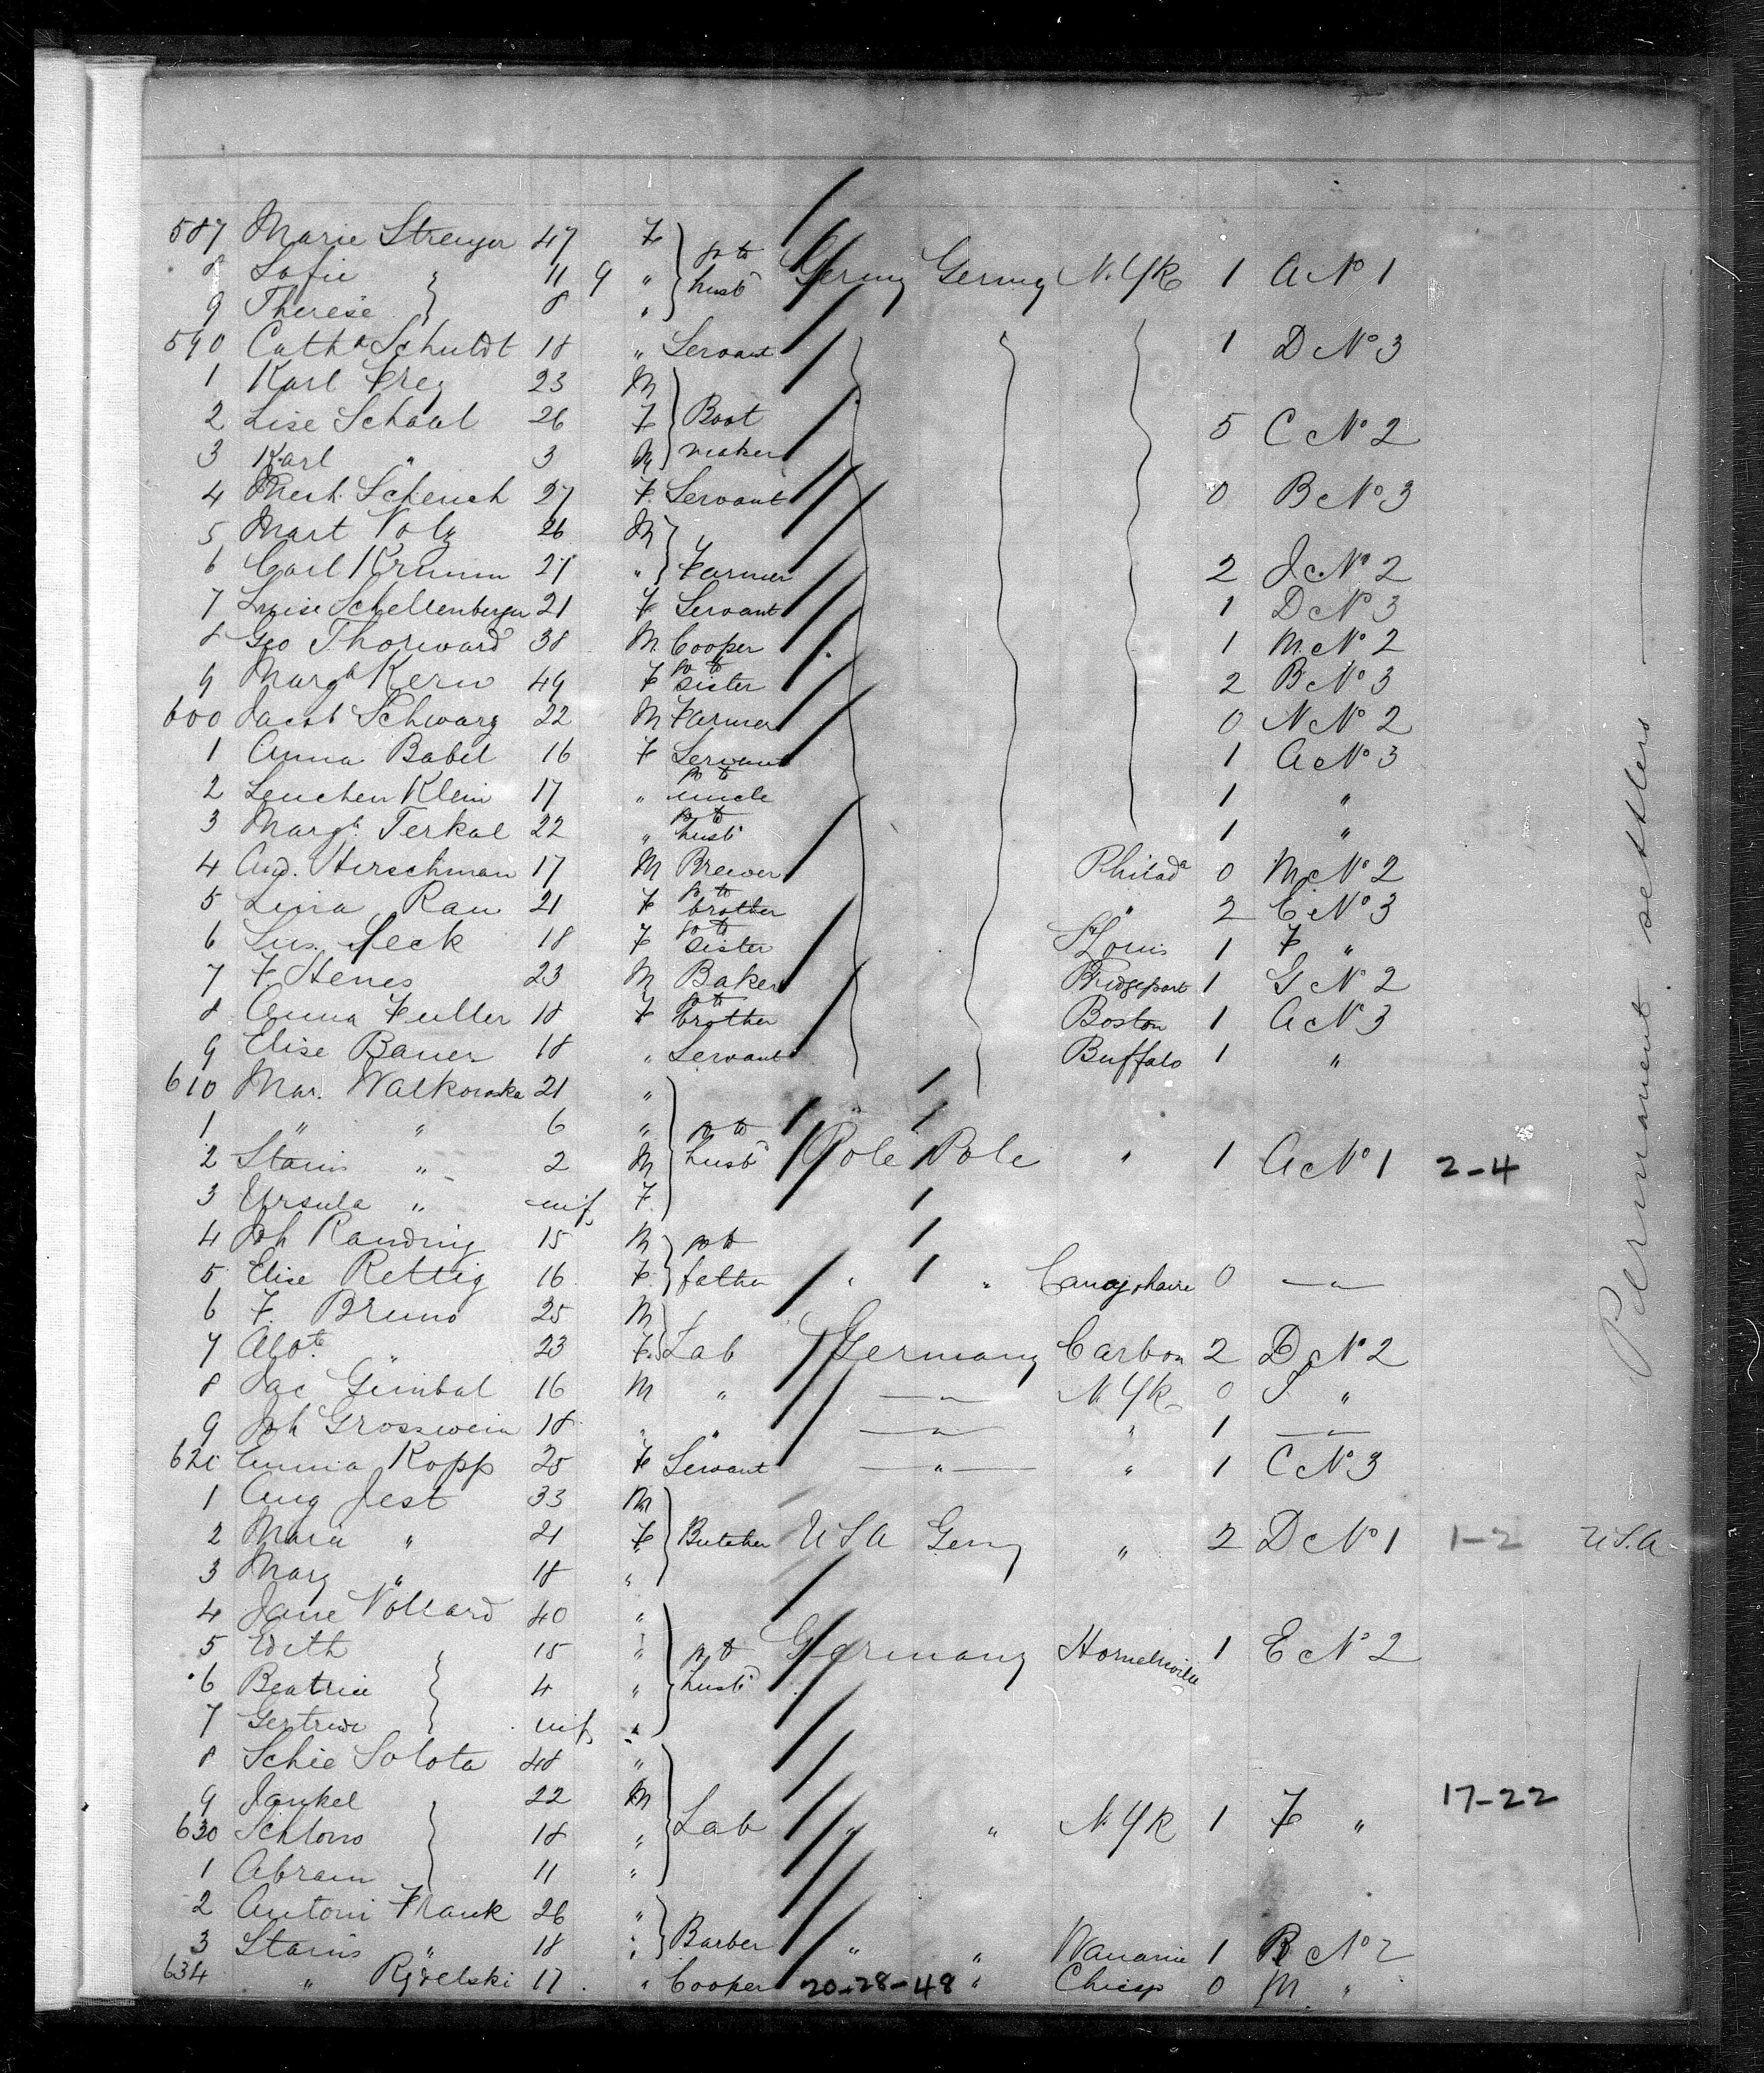 587 Marie Strenger 47 F
8 Sofie " 11 9 " go to husbd Germy Germy N.Yk 1 A No 1
9 Therese 8 "
590 Catha Schuldt 18 " Servant 1 D No 3
1 Karl Frey 23 M
2 Lise Schaal 26 F Boot 5 C No 2
3 Karl " 3 M maker
4 Mech. Scheuch 27 F. Servant 0 B No 3
5 Mart Volz 26 M
6 Carl Krumm 27 " Farmer 2 J No 2
7 Luise Schellenberger 21 F Servant 1 D No 3
8 Geo Thorward 38 M Cooper 1 M No 2
9 Margh Kern 49 F go to sister 2 B No 3
600 Jacob Schwarz 22 M Farmer 0 N No 2
1 Anna Babel 16 F Servant 1 A No 3
2 Lenchen Klein 17 " go to uncle 1 "
3 Margt. Terkal 22 " go to husbd 1 "
4 And. Hirschman 17 M Brewer Philada 0 M No 2
5 Lina Rau 21 F go to brother " 2 E No 3
6 Sus. Seck 18 F go to sister St Louis 1 F "
7 F. Henes 23 M Baker Bridgeport 1 G No 2
8 Anna Fuller 18 F go to brother Boston 1 A No 3
9 Elise Bauer 18 " Servant Buffalo 1 "
610 Mar. Walkowska 21 "
1 " " 6 " go to
2 Stanis " 2 M husbd Pole Pole " 1 A No 1 2-4
3 Ursula " inf. F.
4 Joh Randing 15 M go to
5 Elise Rettig 16 F. father " " Canajoharie 0 "
6 F. Bruno 25 M
7 Albte " 23 F. Lab Germany Carbon 2 D No 2
8 Jac Gumbal 16 M " " N Yk 0 S "
9 Joh Grosswein 18 " " " " 1 "
620 Emma Kopp 25 F Servant " " 1 C No 3
1 Aug Jest 33 M
2 Maria " 21 F Butcher U S A Germy " 2 D No 1 1-2 U.S.A.
3 Marg " 18 "
4 Jane Vollard 40 "
5 Edith 15 " go to Germany Hornellsville 1 E No 2
6 Beatrice 4 " husbd
7 Gertrude inf. "
8 Schie Solota 48 "
9 Jankel 22 M 17-22
630 Schlomo 18 " Lab " " N Yk 1 F "
1 Abram 11 "
2 Antoni Frank 26 "
3 Stanis " 18 " Barber " " Wanamie 1 B No 2
634 " Rydelski 17 " Cooper 20-28-48 " Chicgo 0 M "
Permanent settlers